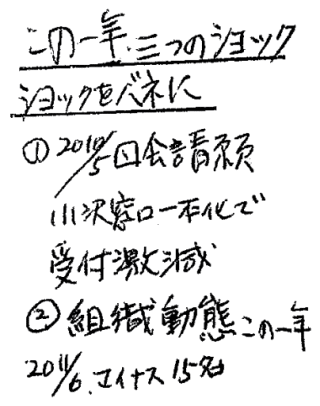 この一年、三つのショック
ショックをバネに
① 2010/5国会請願
小沢窓口一本化で
受付激減
② 組織動態この一年
2011/6、マイナス15名